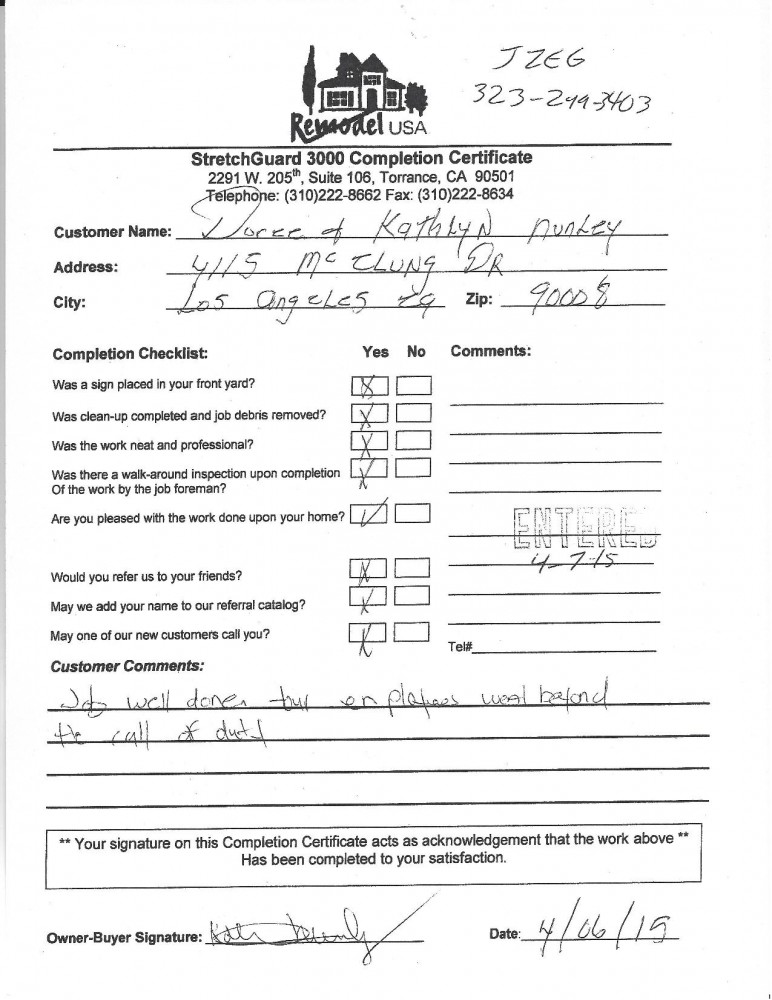 JZEG
323-299-3403
Remodel USA
StretchGuard 3000 Completion Certificate
2291 W. 205th, Suite 106, Torrance, CA 90501
Telephone: (310)222-8662 Fax: (310)222-8634
Customer Name: Kathlyn Nunley
Address: 4115 Mc Clung DR
City: Los Angeles Zip: 90008
Completion Checklist: Yes No Comments:
Was a sign placed in your front yard? X
Was clean-up completed and job debris removed? X
Was the work neat and professional? X
Was there a walk-around inspection upon completion X
Of the work by the job foreman?
Are you pleased with the work done upon your home? ✓
ENTERED
4-7-15
Would you refer us to your friends? X
May we add your name to our referral catalog? X
May one of our new customers call you? X
Tel#
Customer Comments:
Job well done, went beyond
the call of duty
** Your signature on this Completion Certificate acts as acknowledgement that the work above **
Has been completed to your satisfaction.
Owner-Buyer Signature:
Date: 4/06/15